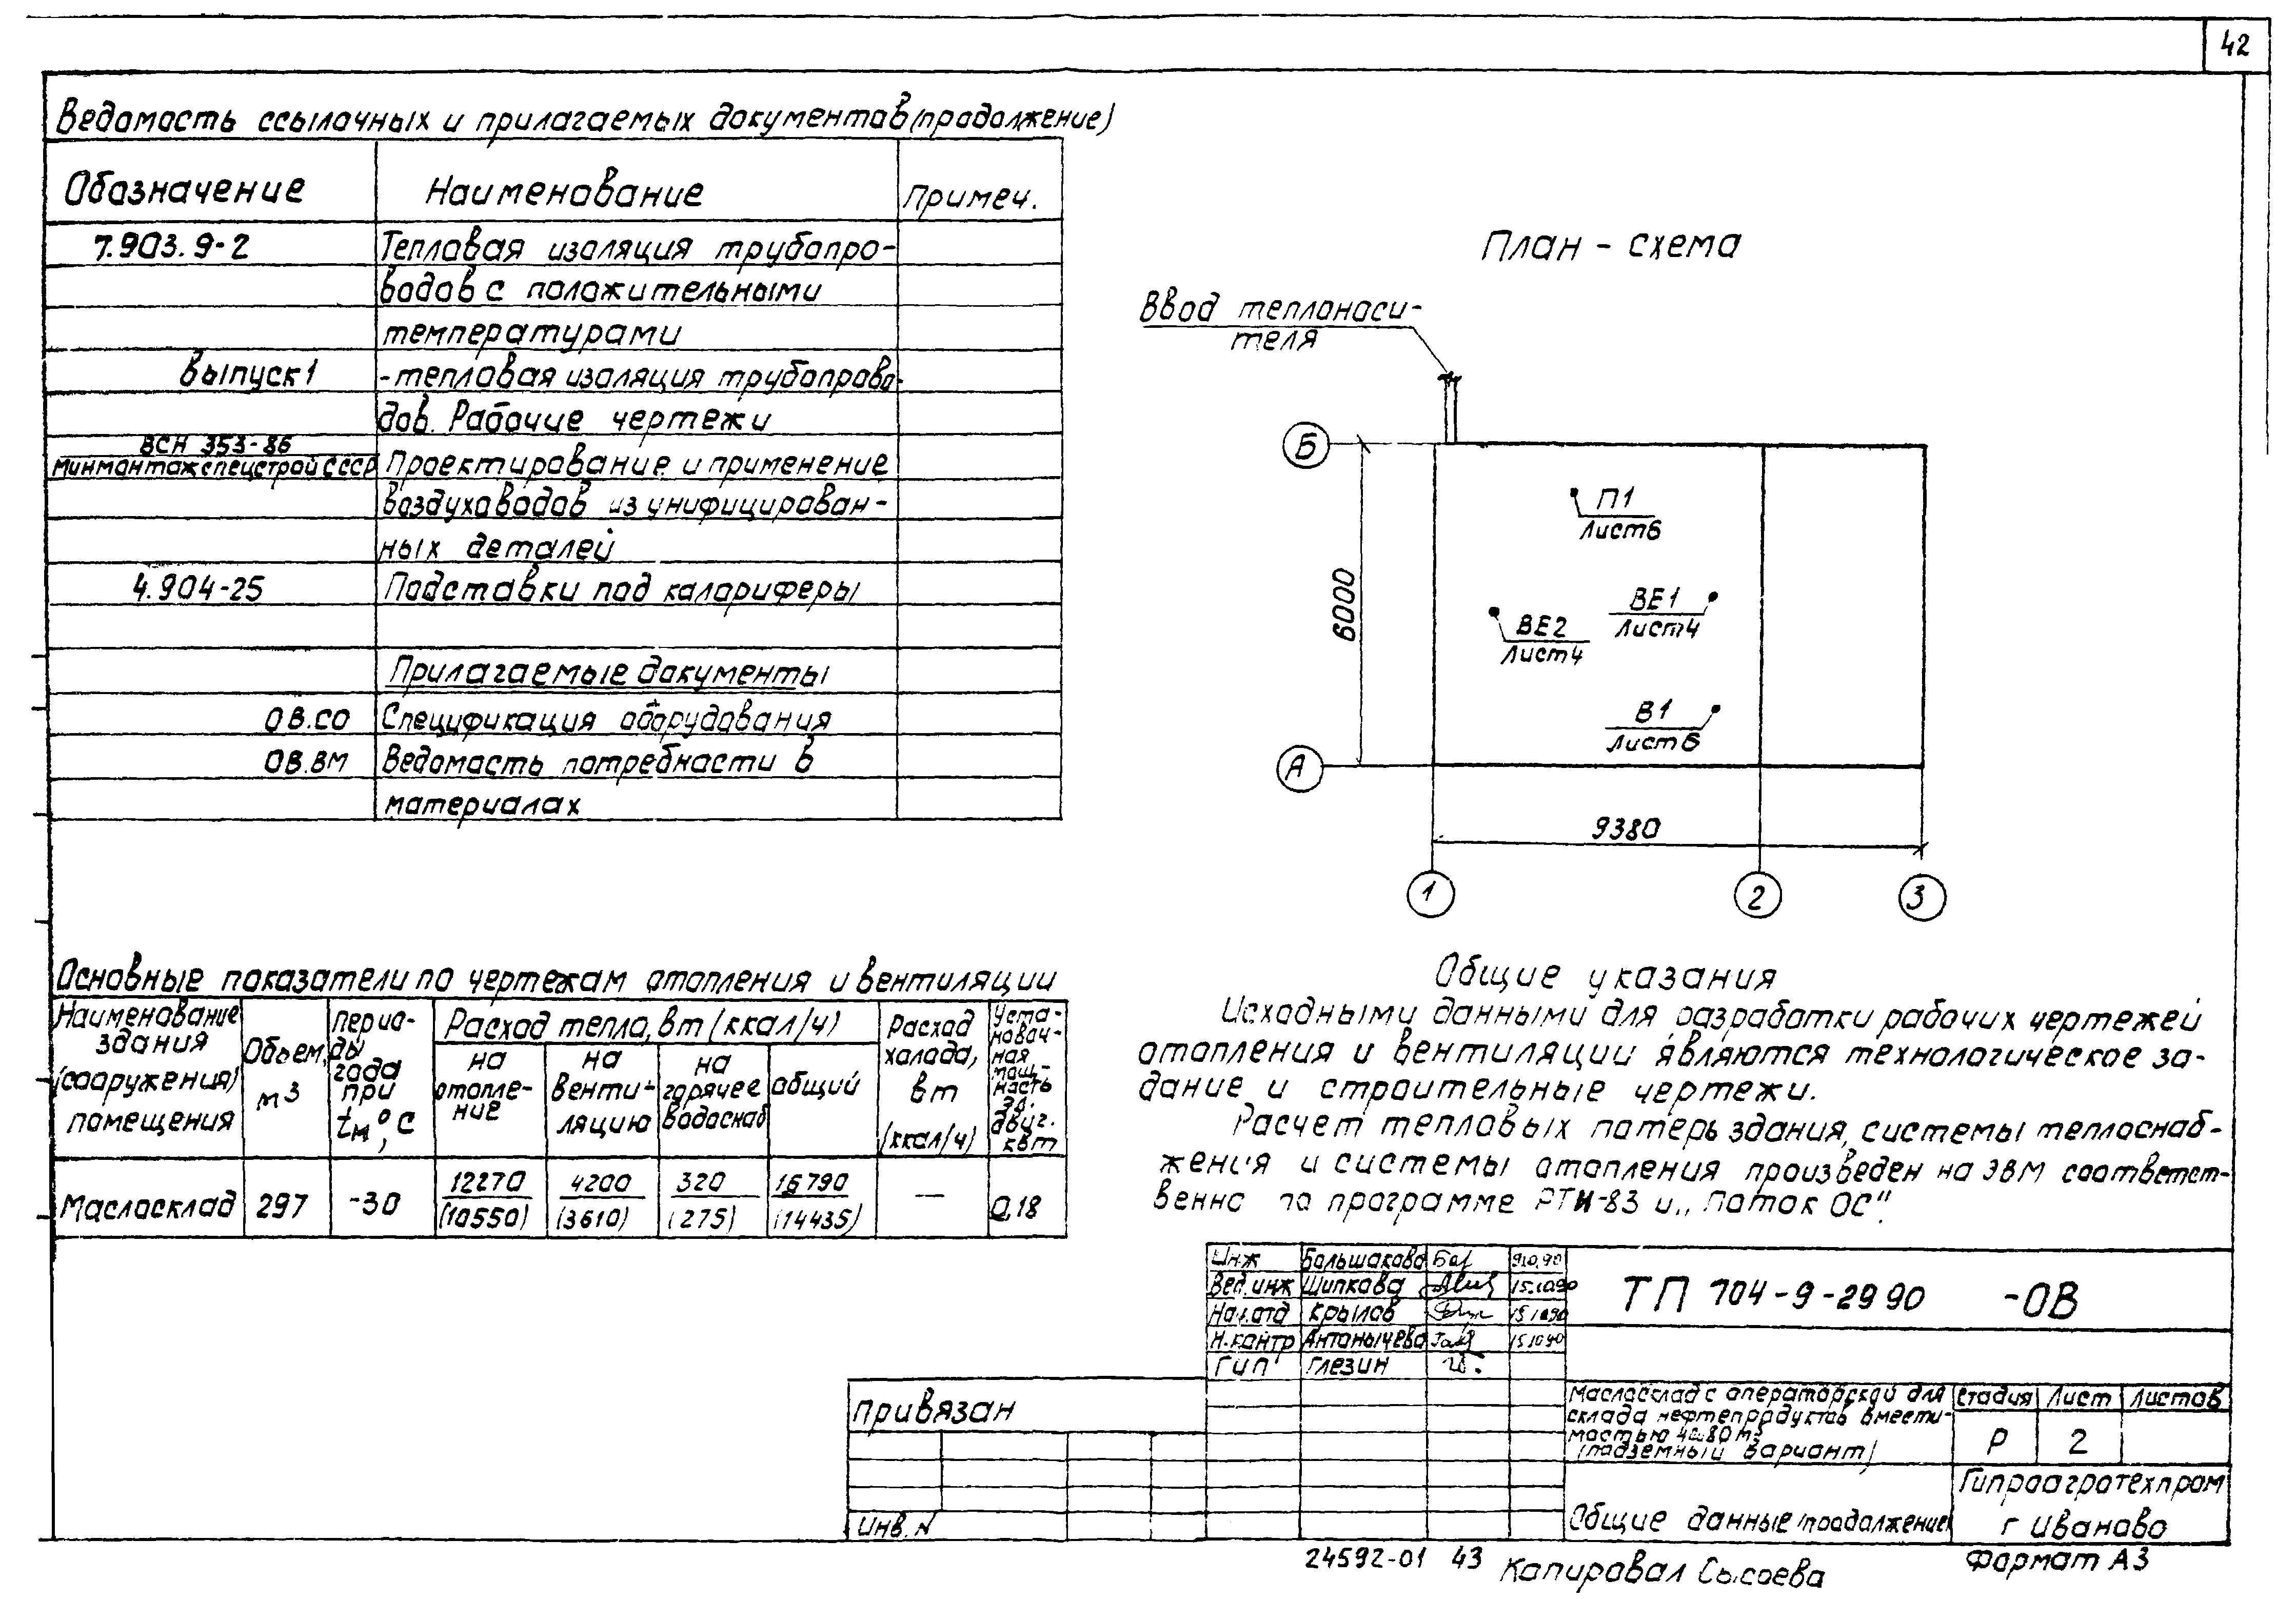 42
Ведомость ссылочных и прилагаемых документов (продолжение)
Обозначение Наименование Примеч.
7.903.9-2 Тепловая изоляция трубопро-
водов с положительными
температурами
выпуск 1 -тепловая изоляция трубопрово-
дов. Рабочие чертежи
ВСН 353-86
Минмонтажспецстрой СССР Проектирование и применение
воздуховодов из унифицирован-
ных деталей
4.904-25 Подставки под калориферы
Прилагаемые документы
ОВ.СО Спецификация оборудования
ОВ.ВМ Ведомость потребности в
материалах
План - схема
Ввод теплоноси-
теля
Б
П1
Лист 6
6000
ВЕ1
Лист 4
ВЕ2
Лист 4
В1
Лист 6
А
9380
1 2 3
Основные показатели по чертежам отопления и вентиляции
Наименование здания (сооружения) помещения
Объем, м3
перио-
ды
года
при
tм,°С
Расход тепла, вт (ккал/ч)
на отопле-
ние
на венти-
ляцию
на горячее водоснаб
общий
Расход холода, вт (ккал/ч)
Уста-
новоч-
ная
мощ-
ность
эл.
двиг.
квт
Маслосклад 297 -30 12270 (10550) 4200 (3610) 320 (275) 16790 (14435) — 0,18
Общие указания
Исходными данными для разработки рабочих чертежей
отопления и вентиляции являются технологическое за-
дание и строительные чертежи.
Расчет тепловых потерь здания, системы теплоснаб-
жения и системы отопления произведен на ЭВМ соответст-
венно по программе РТИ-83 и „Поток ОС".
Инж Большакова 9.10.90
Вед.инж Шипкова 15.10.90
Нач.отд Крылов 15.10.90
Н.контр Антонычева 15.10.90
ГИП Глезин
ТП 704-9-29 90 -ОВ
Маслосклад с операторской для
склада нефтепродуктов вмести-
мостью 40..80 м3
(надземный вариант)
Стадия Лист Листов
Р 2
Общие данные (продолжение)
Гипроагротехпром
г Иваново
Привязан
Инв. N
24592-01 43 Копировал Сысоева Формат А3